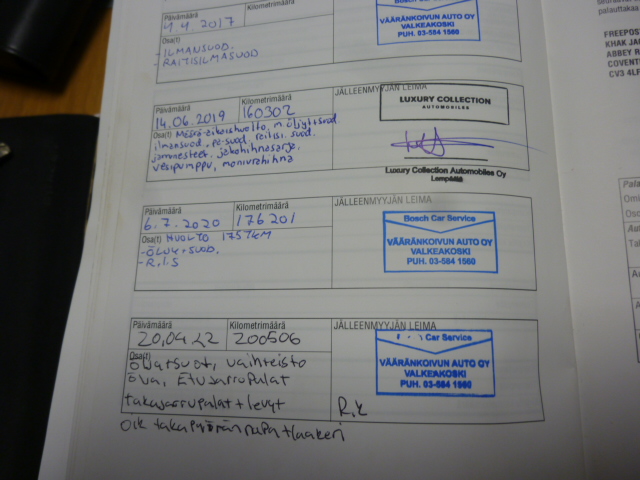 seuraavaa
palauttaka
FREEPOST
KHAK JAG
ABBEY R
COVENT
CV3 4LF
Päivämäärä
Kilometrimäärä
4.4.2017
Osa(t)
-ILMANSUOD.
-RAITISILMASUOD
VÄÄRÄNKOIVUN AUTO OY
VALKEAKOSKI
PUH. 03-584 1560
Päivämäärä
Kilometrimäärä
JÄLLEENMYYJÄN LEIMA
14.06.2019
160302
Osa(t) Määrä-aikaishuolto, m.öljyt+suod
ilmansuod, pa-suod, raitisi. suod.
jarrunesteet, jakohihnasarja,
vesipumppu, moniurahihna
LUXURY COLLECTION
AUTOMOBILES
Luxury Collection Automobiles Oy
Lempäälä
Päivämäärä
Kilometrimäärä
JÄLLEENMYYJÄN LEIMA
6.7.2020
176201
Osa(t) HUOLTO 175TKM
-ÖLJY+SUOD.
-R.I.S
Bosch Car Service
VÄÄRÄNKOIVUN AUTO OY
VALKEAKOSKI
PUH. 03-584 1560
Päivämäärä
Kilometrimäärä
JÄLLEENMYYJÄN LEIMA
20.04.22
200506
Osa(t)
Öljy+suot, vaihteisto
öljy, Etujarrupalat
takajarrupalat+levyt
oik takapyörän napa+laakeri
Car Service
VÄÄRÄNKOIVUN AUTO OY
VALKEAKOSKI
PUH. 03-584 1560
R.K